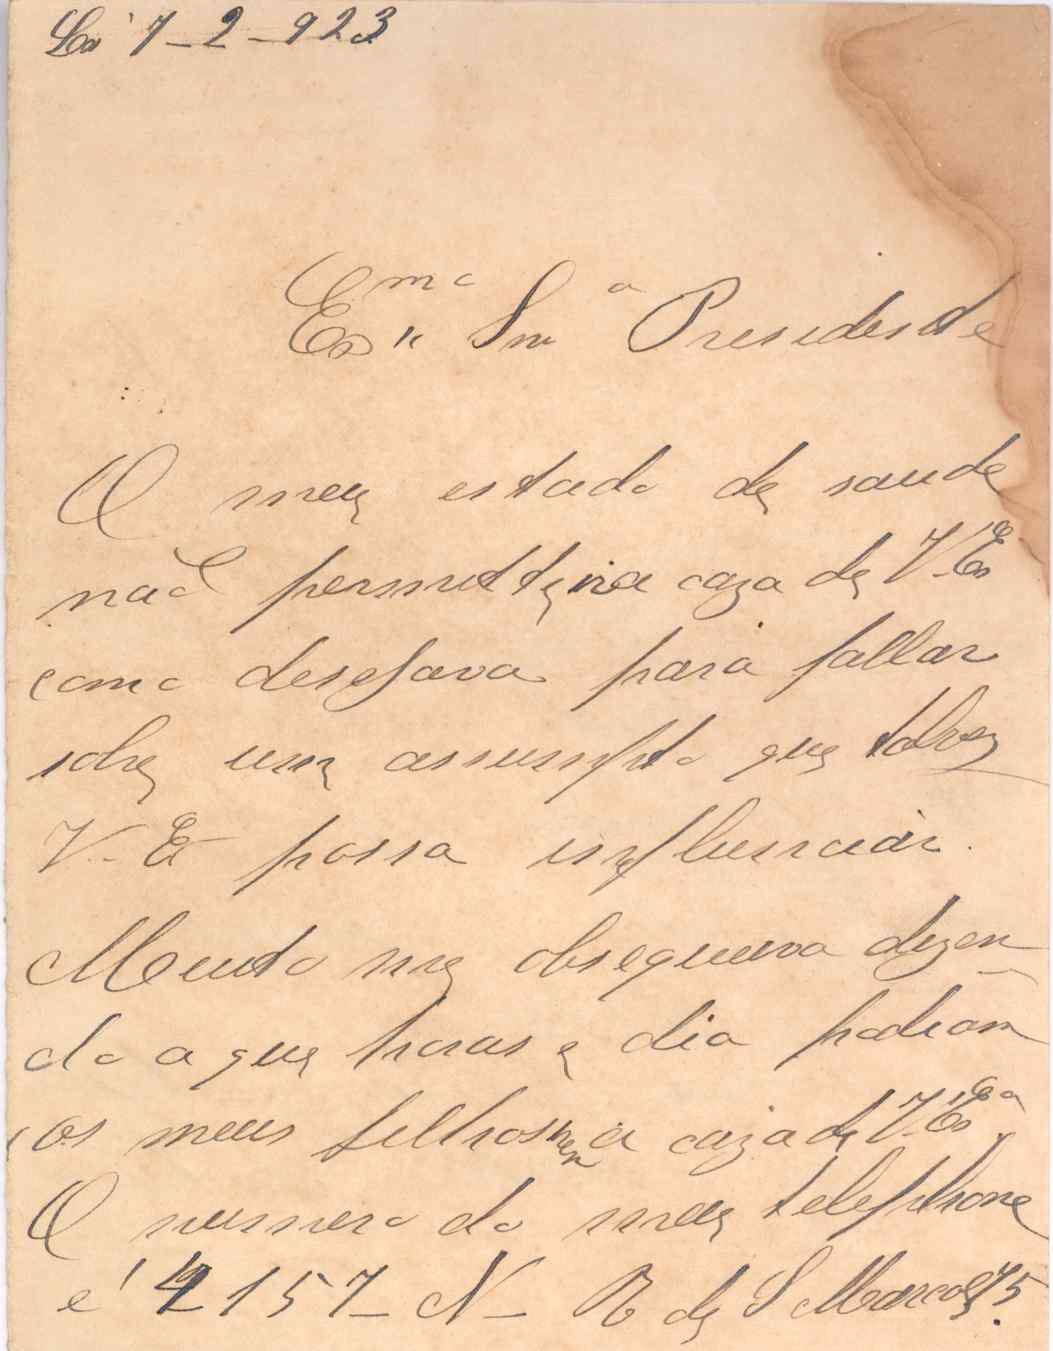 Lxª 7-2-923
Exmª Snrª Presidente
O meu estado de saude
não permitte ir a caza de V. Exª
como desejava para fallar
sobre um assumpto que talvez
V. Exª possa influenciar.
Muito me obsequiava dizen-
do a que horas e dia podiam
os meus filhos ir a caza de V. Exª.
O numero do meu telephone
é 2157-N- R de S Marcos 75.